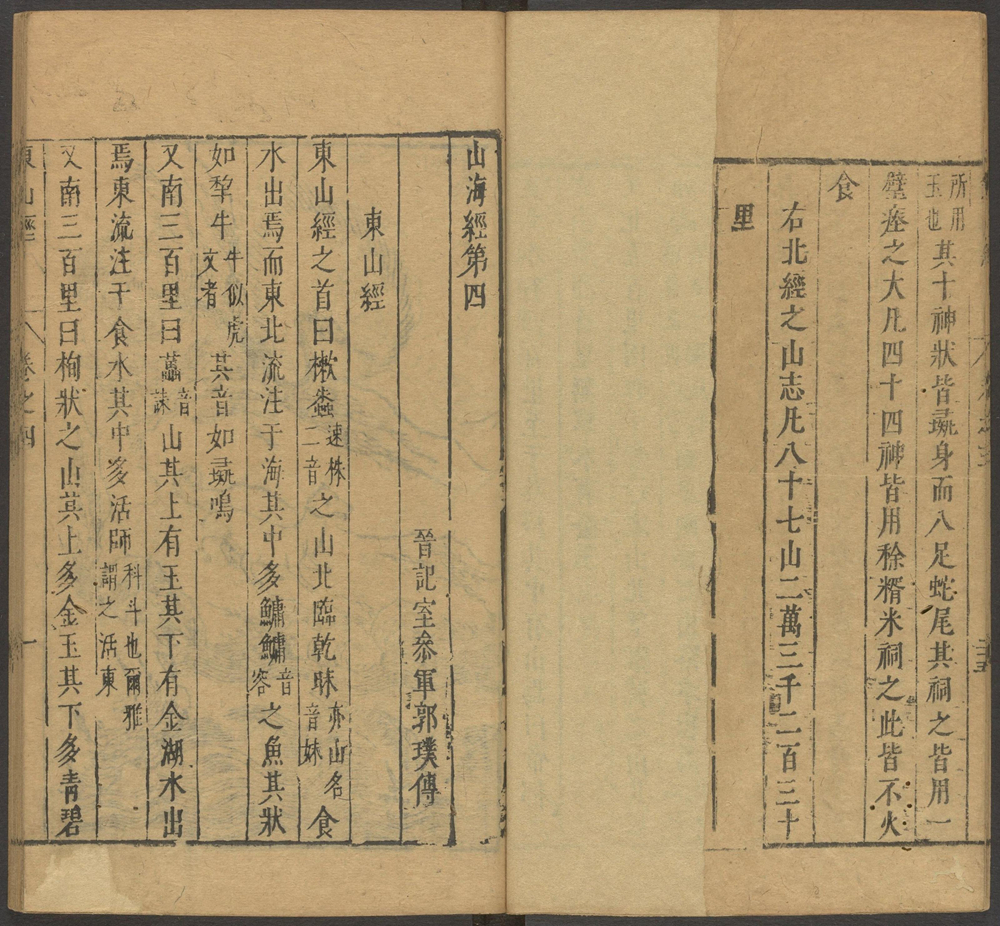 所用玉也其十神狀皆彘身而八足蛇尾其祠之皆用一
璧瘞之大凡四十四神皆用稌糈米祠之此皆不火
食
右北經之山志凡八十七山二萬三千二百三十
里
山海經第四
晉記室叅軍郭璞傳
東山經
東山經之首曰樕𧑤速株二音之山北臨乾昧亦山名音妹食
水出焉而東北流注于海其中多鱅鱅音容之魚其狀
如犂牛牛似虎文者其音如彘鳴
又南三百里曰藟音誄山其上有玉其下有金湖水出
焉東流注于食水其中多活師科斗也爾雅謂之活東
又南三百里曰栒狀之山其上多金玉其下多青碧
東山經 卷之四 一